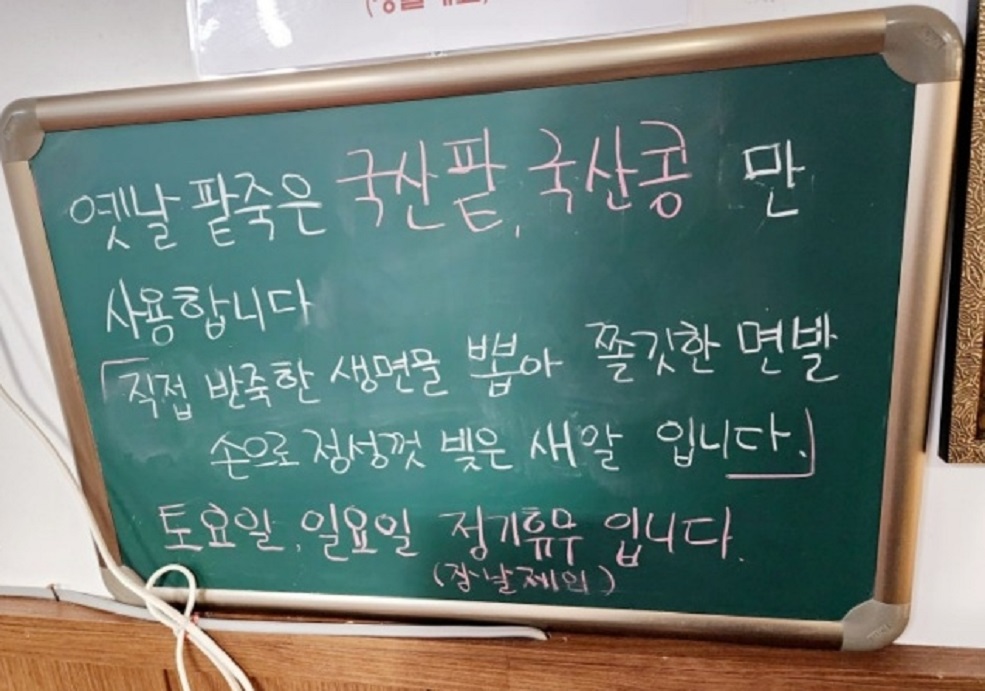 옛날 팥죽은 국산팥, 국산콩 만
사용합니다
직접 반죽한 생면을 뽑아 쫄깃한 면발
손으로 정성껏 빚은 새알 입니다.
토요일, 일요일 정기휴무 입니다.
(장날제외)